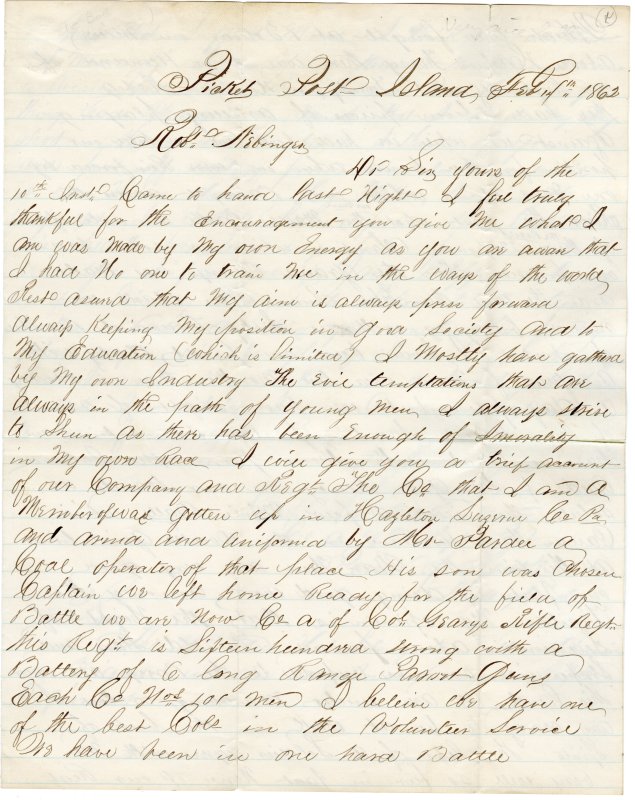 Picket Post Island, Feb 14th 1862
Robt Nebinger
Dr Sir yours of the
10th Inst. Came to hand last Night I feel truly
thankful for the Encouragement you give Me what I
am was Made by My own Energy as you are awar that
I had No one to train Me in the ways of the world
Rest asured that My aim is always press forward
always Keeping My position in good Society and to
My Education (which is limited) I Mostly have gathered
by My own Industry The Evil temptations that are
always in the path of young Men I always strive
to Shun as there has been Enough of Imorality
in My own Race I will give you a brief account
of our Company and Regt. The Co that I am A
Member of was gotten up in Hazleton Luzerne Co Pa
and armed and uniformed by Mr Pardee a
Coal operator of that place His son was Chosen
Captain we left home Ready for the field of
Battle we are Now Co A of Col Gearys Rifle Regt.
this Regt. is Sifteen hundred strong with a
Battery of 6 long Range Parrot Guns
Each Co Nos 100 Men I beleiv we have one
of the best Cols in the Volunteer Service
We have been in one hard Battle